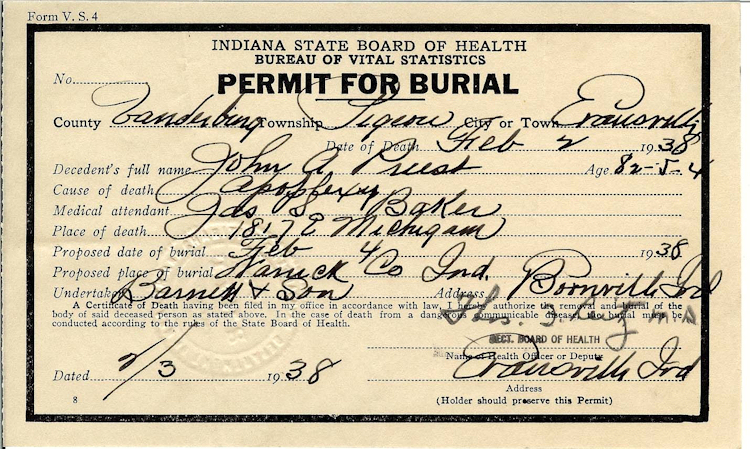 Form V. S. 4
INDIANA STATE BOARD OF HEALTH
BUREAU OF VITAL STATISTICS
No.
PERMIT FOR BURIAL
County Vanderburg Township Pigeon City or Town Evansville
Date of Death Feb 2 1938
Decedent's full name John A Priest Age 82-5-4
Cause of death Apoplexy
Medical attendant Jas S Baker
Place of death 1817 E Michigan
Proposed date of burial Feb 4 1938
Proposed place of burial Warrick Co Ind.
Undertaker Barnett & Son Address Boonville Ind
A Certificate of Death having been filed in my office in accordance with law, I hereby authorize the removal and burial of the
body of said deceased person as stated above. In the case of death from a dangerous communicable disease, the burial must be
conducted according to the rules of the State Board of Health.
M.D.
SECT. BOARD OF HEALTH
Name of Health Officer or Deputy
Dated 2/3 1938 Evansville Ind
Address
8 (Holder should preserve this Permit)